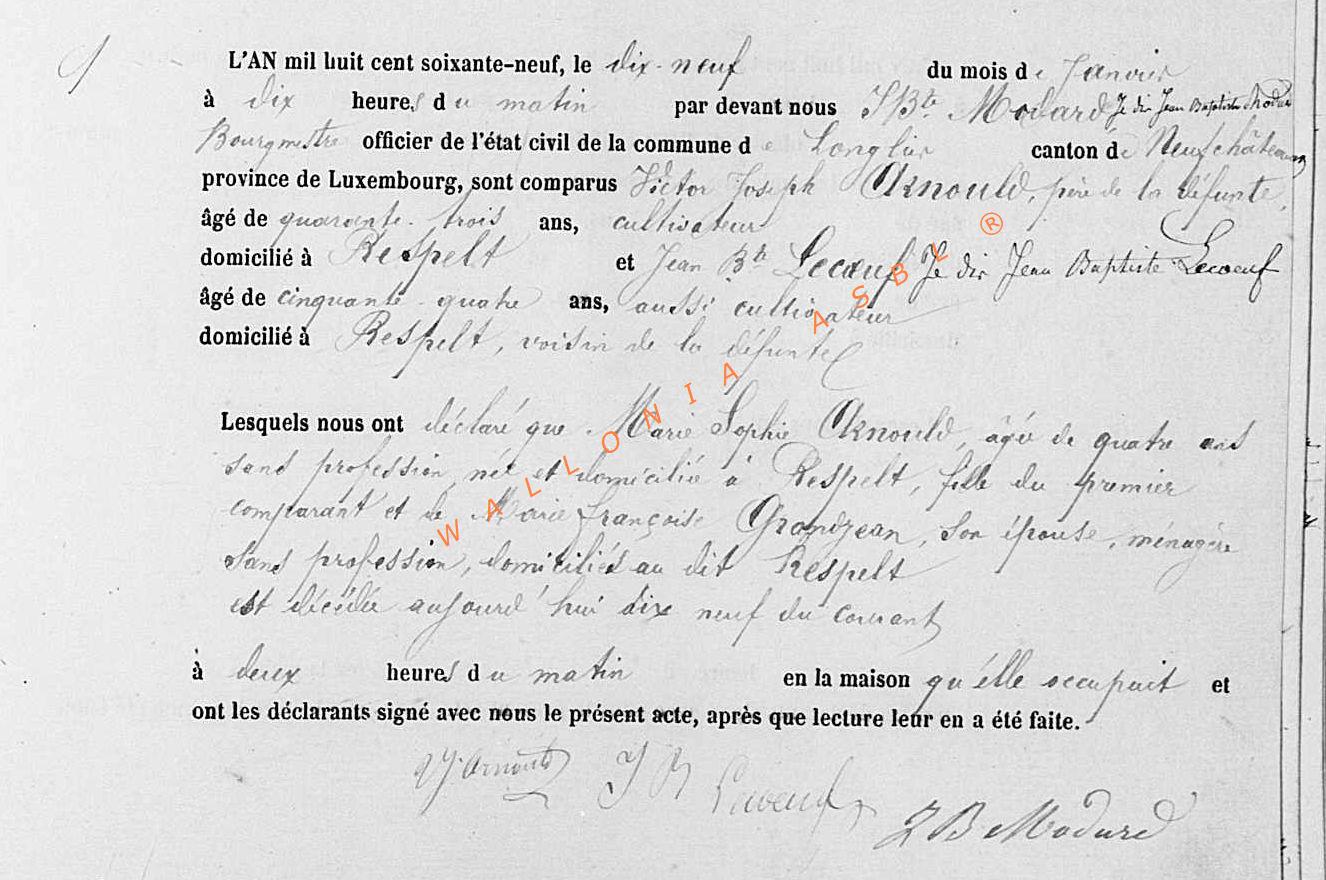 L'AN mil huit cent soixante-neuf, le dix-neuf du mois de Janvier
à dix heures du matin par devant nous J Bte Modard Je dis Jean Baptiste Modard
Bourgmestre officier de l'état civil de la commune de Longlier canton de Neufchâteau
province de Luxembourg, sont comparus Victor Joseph Arnould, père de la défunte,
âgé de quarante-trois ans, cultivateur
domicilié à Respelt et Jean Bte Lecoeuf Je dis Jean Baptiste Lecoeuf
âgé de cinquante-quatre ans, aussi cultivateur
domicilié à Respelt, voisin de la défunte
Lesquels nous ont déclaré que Marie Sophie Arnould, âgée de quatre ans
sans profession née et domiciliée à Respelt, fille du premier
comparant et de Marie Françoise Grandjean, son épouse, ménagère
sans profession, domiciliés au dit Respelt
est décédée aujourd'hui dix neuf du courant
à deux heures du matin en la maison qu'elle occupait et
ont les déclarants signé avec nous le présent acte, après que lecture leur en a été faite.
VJ. Arnould J B Lecoeuf J B Modard
WALLONIA ASBL ®